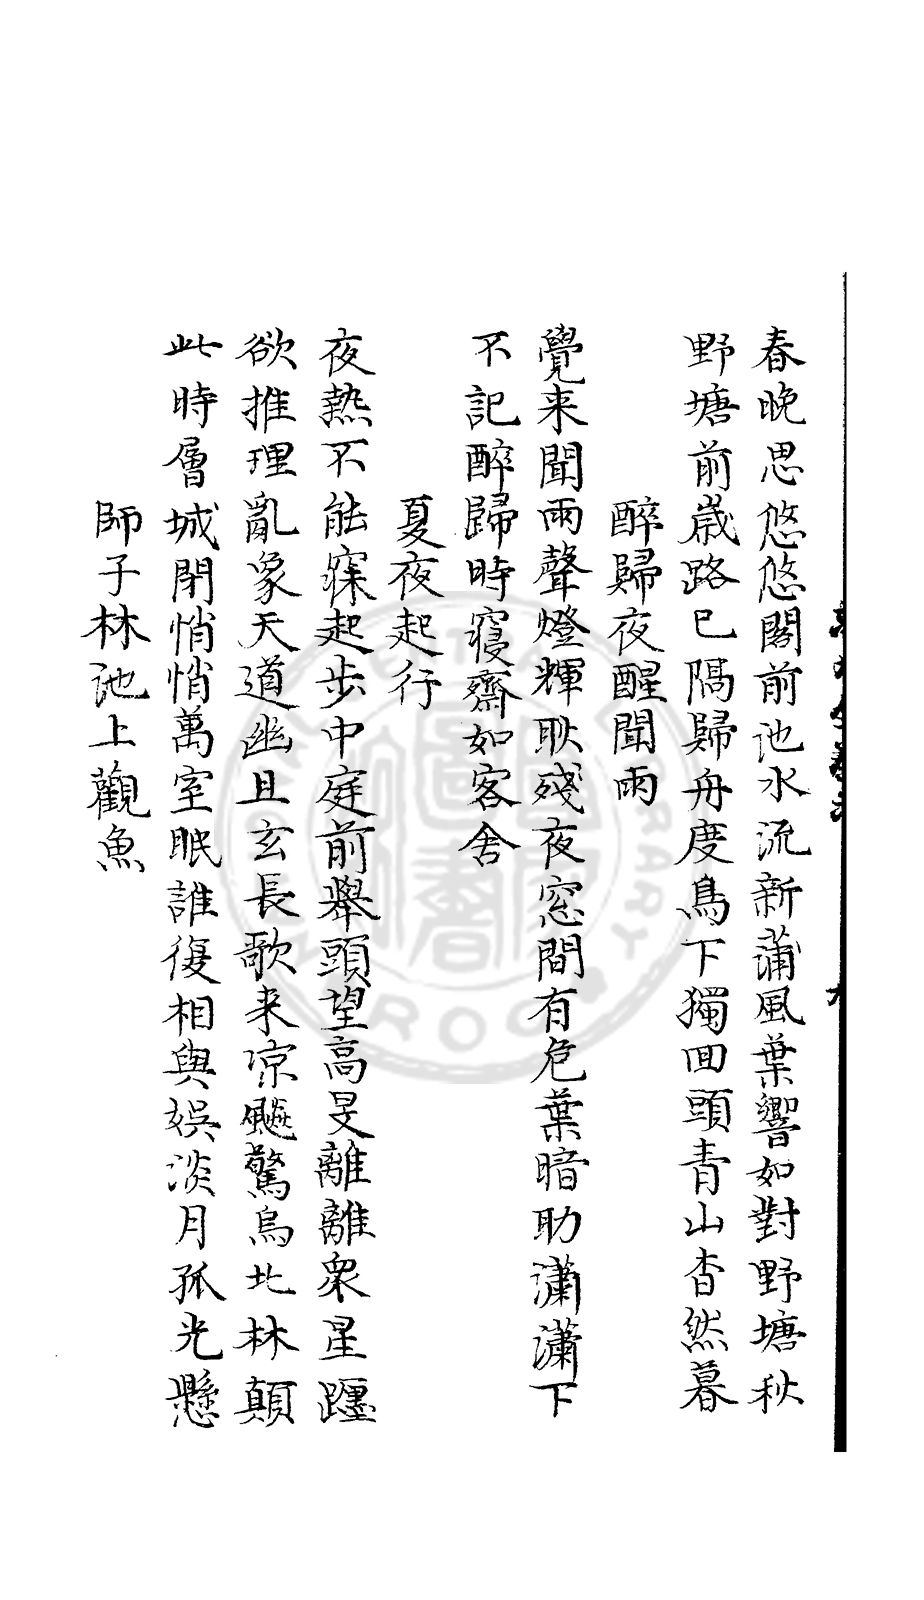 春晚思悠悠閣前池水流新蒲風葉響如對野塘秋
野塘前歲路已隔歸舟度鳥下獨回頭青山杳然暮
醉歸夜醒聞雨
覺来聞雨聲燈輝耿殘夜窓間有危葉暗助瀟瀟下
不記醉歸時寢齋如客舍
夏夜起行
夜熱不能寐起步中庭前舉頭望高旻離離衆星躔
欲推理亂象天道幽且玄長歌来凉飈驚烏北林顛
此時層城閉悄悄萬室眠誰復相與娯淡月孤光懸
師子林池上觀魚